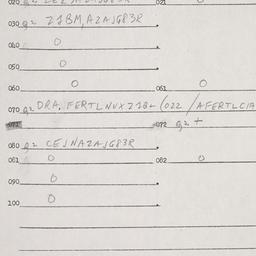 020 021 0
030 g2 Z7BM,AZAJG83R
040 0
050 0
060 0 061 0
070 g2 DRA, FERTLNVXZ78+(022 /AFERTLCIA
071 072 g2 +
080 g2 CEJNAZAJG83R
081 0 082 0
090 0
100 0